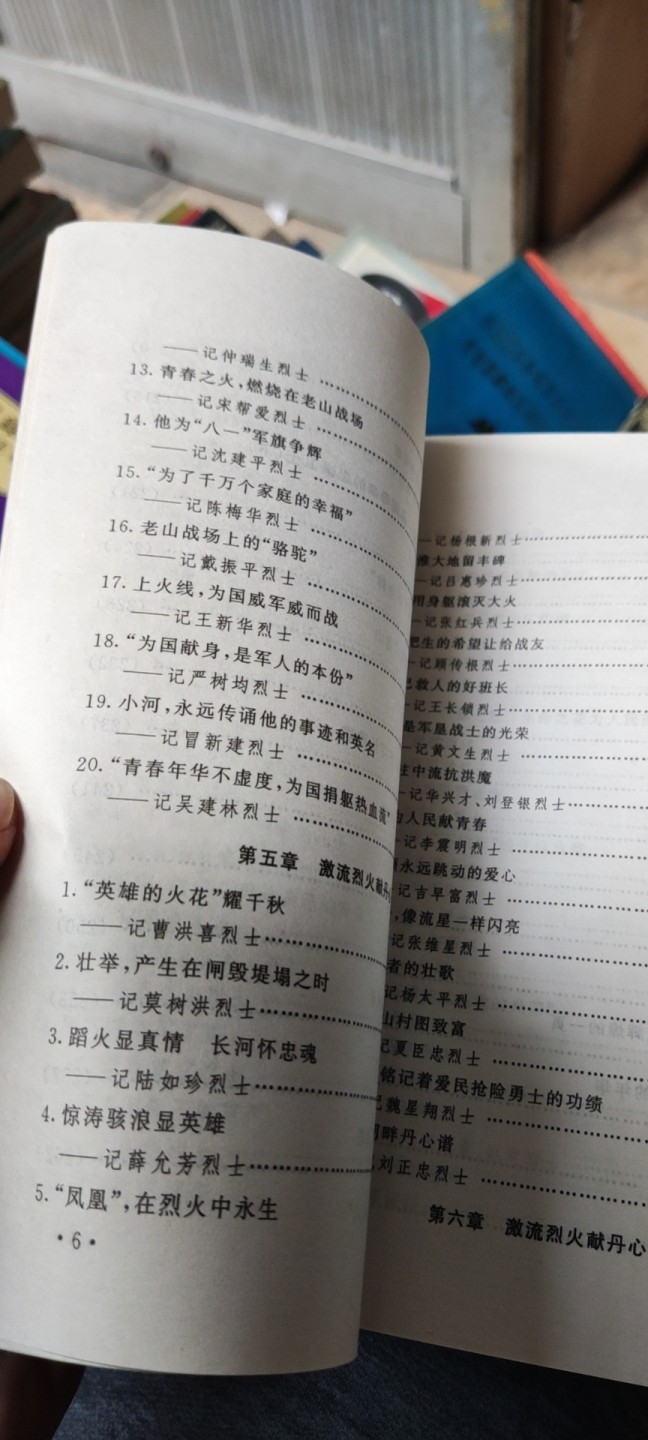 ——记仲瑞生烈士 ………………
13. 青春之火,燃烧在老山战场
——记宋帮爱烈士 ………………
14. 他为“八一”军旗争辉
——记沈建平烈士 ………………
15. “为了千万个家庭的幸福”
——记陈梅华烈士 ………………
16. 老山战场上的“骆驼”
——记戴振平烈士 ………………
17. 上火线,为国威军威而战
——记王新华烈士 ………………
18. “为国献身,是军人的本份”
——记严树均烈士 ………………
19. 小河,永远传诵他的事迹和英名
——记冒新建烈士 ………………
20. “青春年华不虚度,为国捐躯热血流”
——记吴建林烈士 ………………
第五章 激流烈火献丹
1. “英雄的火花”耀千秋
——记曹洪喜烈士………………
2. 壮举,产生在闸毁堤塌之时
——记莫树洪烈士………………
3. 蹈火显真情 长河怀忠魂
——记陆如珍烈士………………
4. 惊涛骇浪显英雄
——记薛允芳烈士………………
5. “凤凰”,在烈火中永生
·6·
—记杨根新烈士………………
淮大地留丰碑
—记吕惠珍烈士………………
用身躯滚灭大火
—记张红兵烈士………………
把生的希望让给战友
—记顾传根烈士………………
己救人的好班长
—记王长锁烈士………………
是军垦战士的光荣
—记黄文生烈士………………
中流抗洪魔
—记华兴才、刘登银烈士………………
为人民献青春
—记李震明烈士………………
永远跳动的爱心
记吉早富烈士 ………………
,像流星一样闪亮
记张维星烈士 ………………
者的壮歌
记杨太平烈士 ………………
山村图致富
记夏臣忠烈士 ………………
铭记着爱民抢险勇士的功绩
记魏星翔烈士 ………………
畔丹心谱
刘正忠烈士 ………………
第六章 激流烈火献丹心